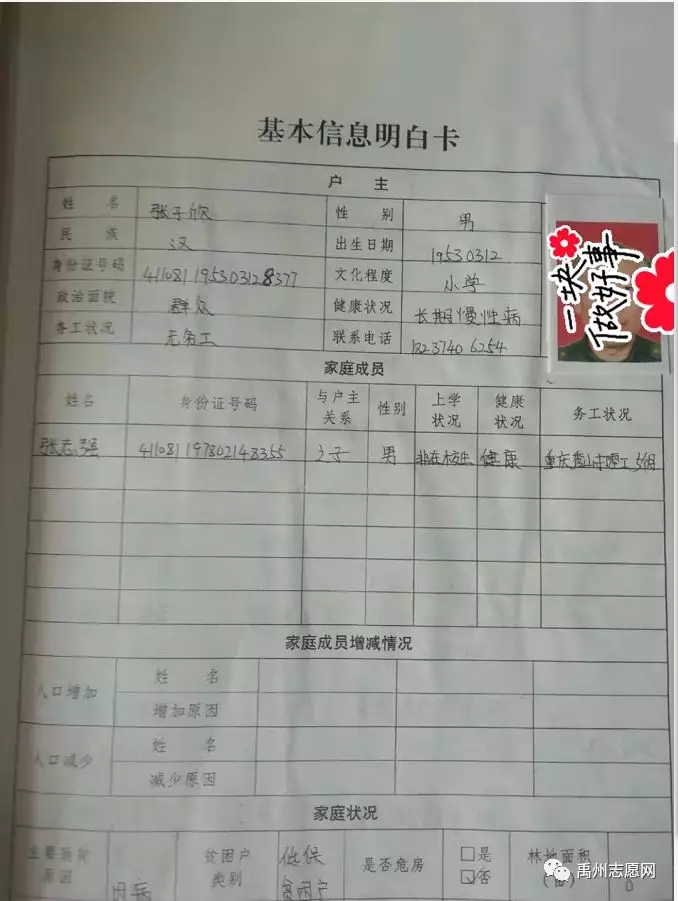 基本信息明白卡
户 主
姓 名 张子欣 性 别 男
民 族 汉 出生日期 19530312
身份证号码 411081195303128377 文化程度 小学
政治面貌 群众 健康状况 长期慢性病
务工状况 无务工 联系电话 18237406254
一块
做好事
家庭成员
姓名 身份证号码 与户主关系 性别 上学状况 健康状况 务工状况
张志强 411081197802148355 之子 男 非在校生 健康 重庆
家庭成员增减情况
人口增加 姓 名
增加原因
人口减少 姓 名
减少原因
家庭状况
主要致贫原因 因病 贫困户类别 低保贫困户 是否危房 □是 ☑否 林地面积(亩) 0
禹州志愿网